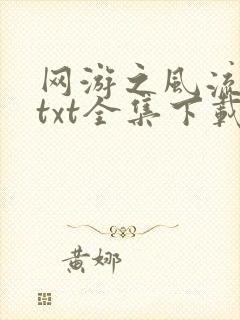 网游之风流
txt全集下载
黄娜